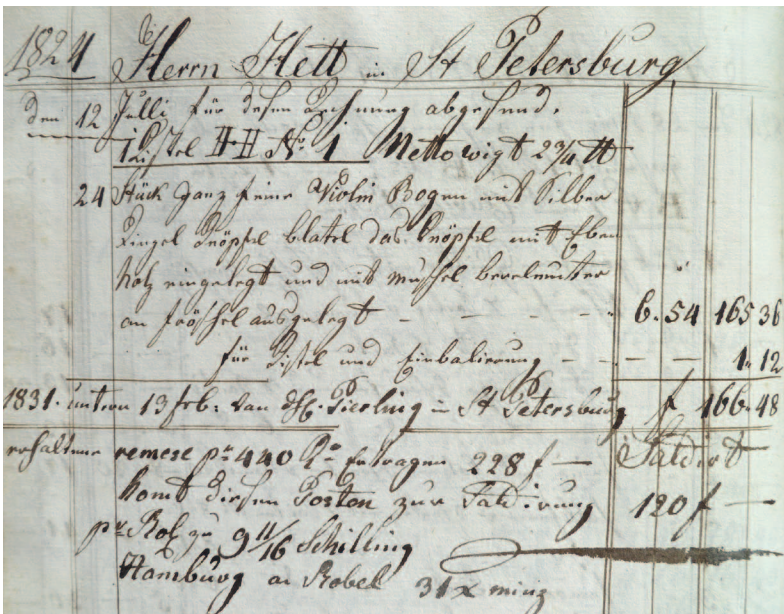 1824 Herrn Hett in St Petersburg
den 12 Julli für desen Rechnung abgesend.
1 Kistel H·H No. 1 Netto wigt 2 3/4 tt
24 Stück ganz feine Violin Bogen mit Silber
Ringel Knöpfel blatel das Knöpfel mit Eben
holz eingelegt und mit muschel
an fröschel ausgelegt – – – – 6.54 165 36
für Kistel und Einbalierung – – – – 1.12
1831. untern 13 feb: von Pierling in St Petersburg f 166.48
erhaltene remese pr 440 Ro Ertragen 228 f — Saldirt
komt diesen Posten zur Saldirung 120 f —
pr Rob zu 9 11/16 Schilling
Hamburg a Robel 31 x